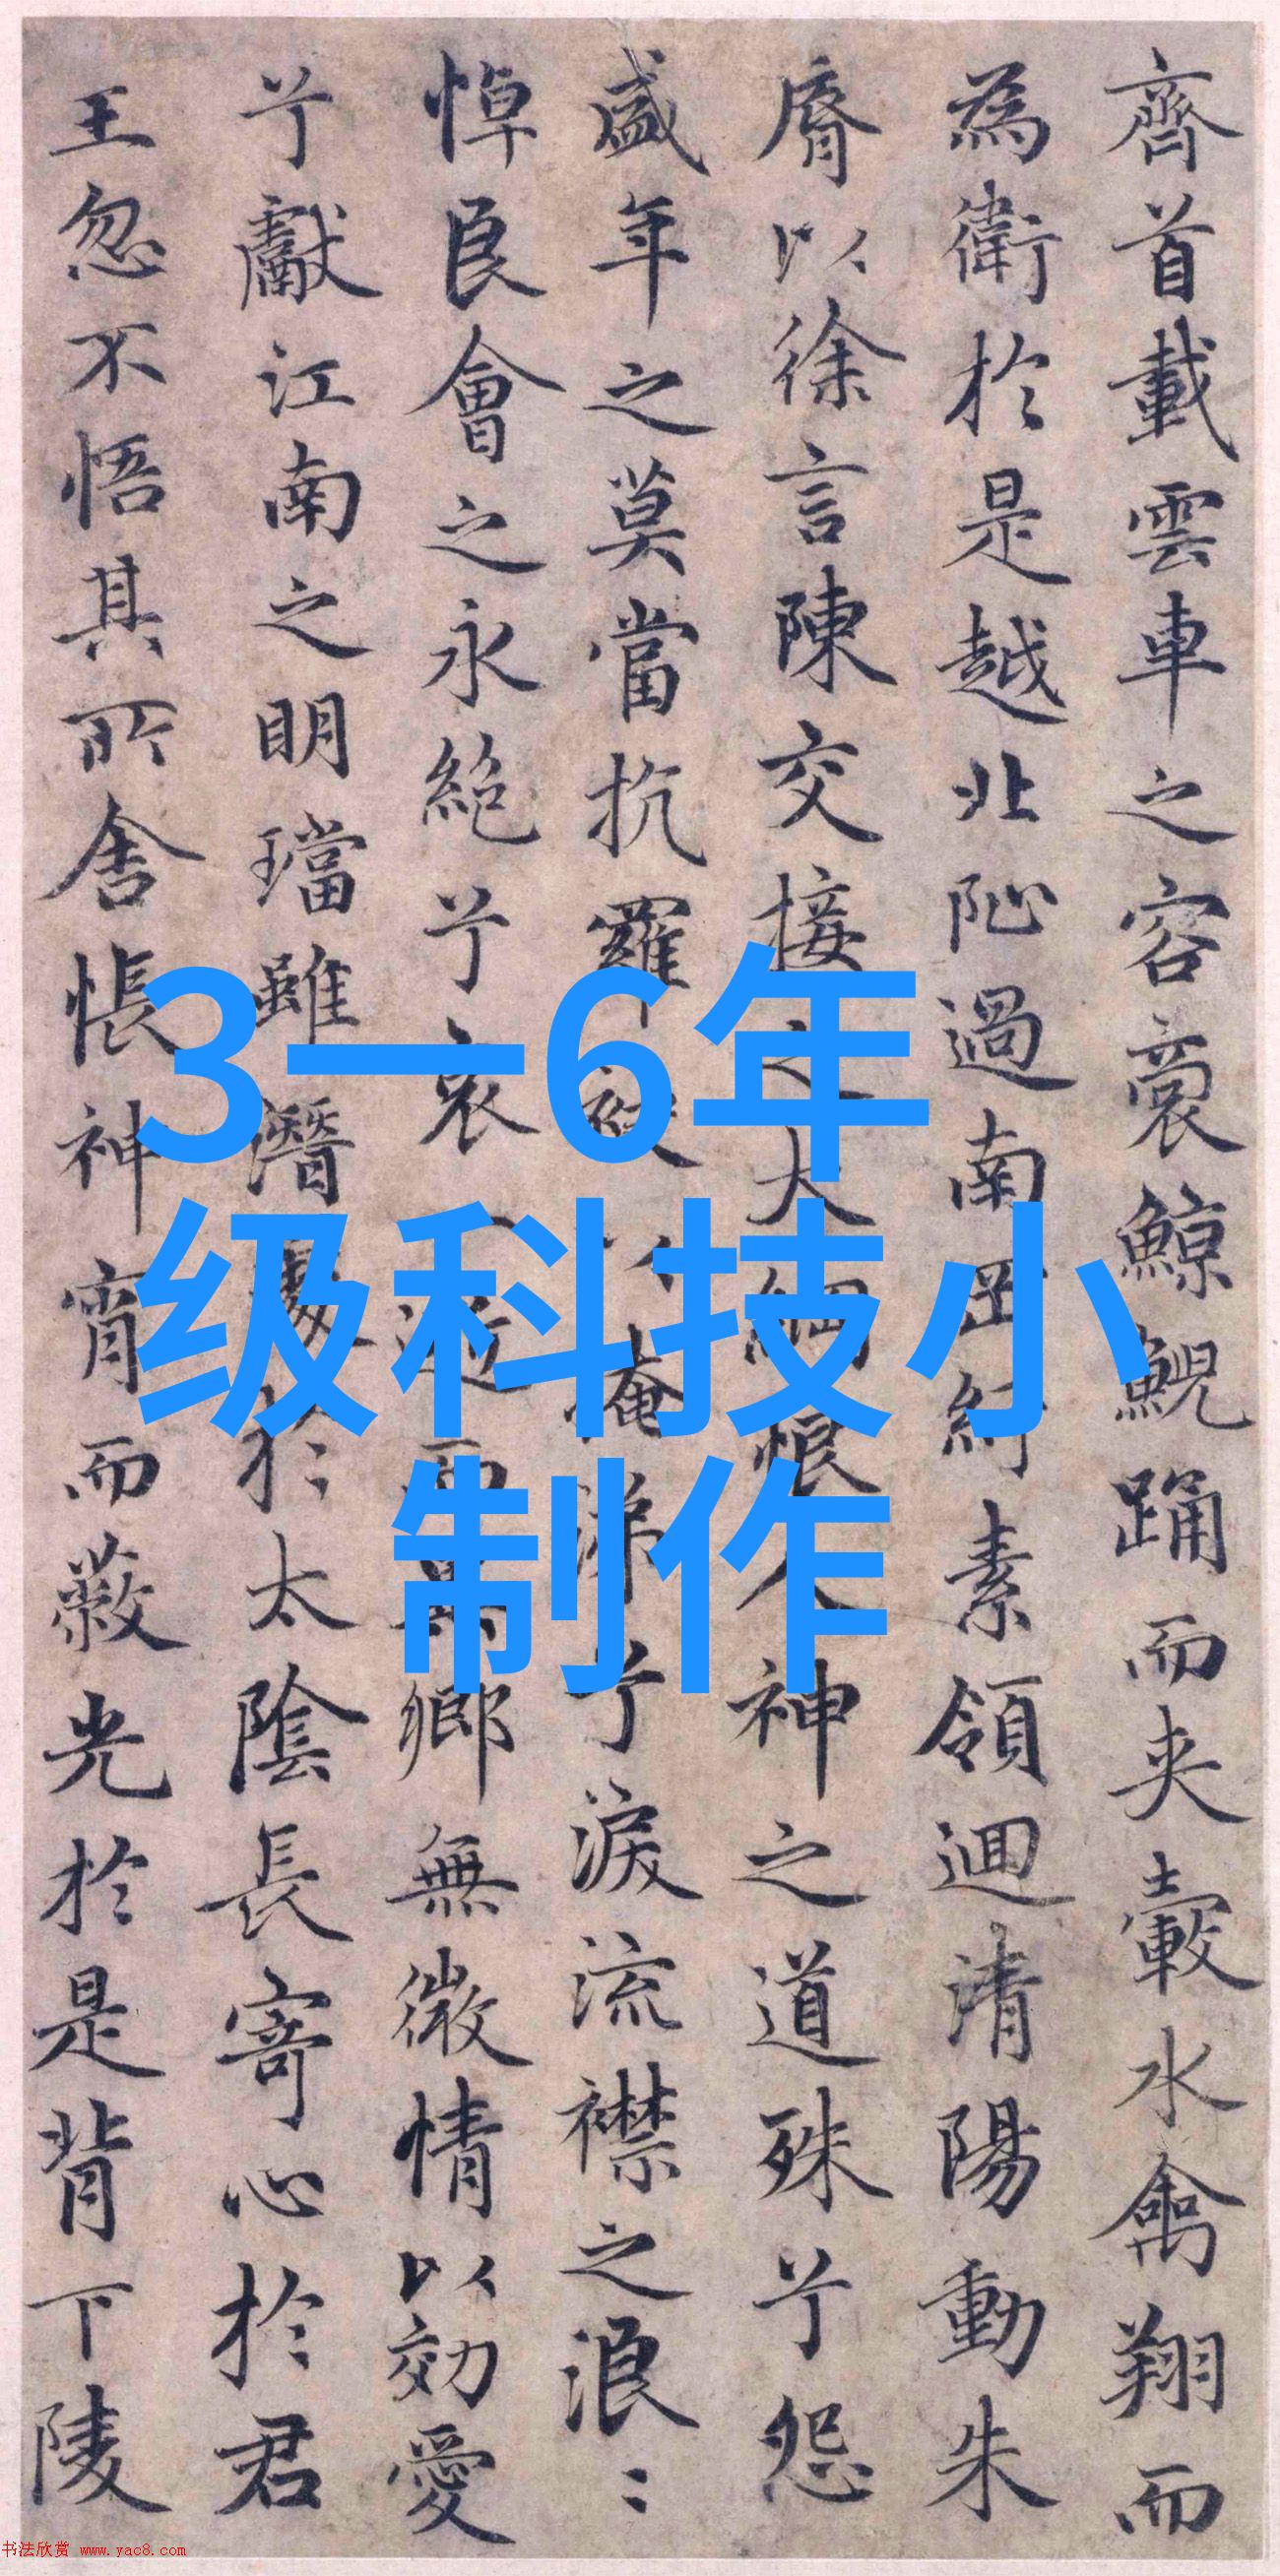 齊首載雲車之容裔鯨鯢踊而夾轂水禽翔而
為衛於是越北阯過南岡紆素領迴清陽動朱
脣以徐言陳交接之大綱恨人神之道殊兮怨
盛年之莫當抗羅袂以掩涕兮淚流襟之浪〻
悼良會之永絕兮哀一逝而異鄉無微情以効愛
兮獻江南之明璫雖潛處於太陰長寄心於君
王忽不悟其所舍悵神宵而蔽光於是背下陵
3一6年
级科技小
制作
书法欣赏 www.yac8.com